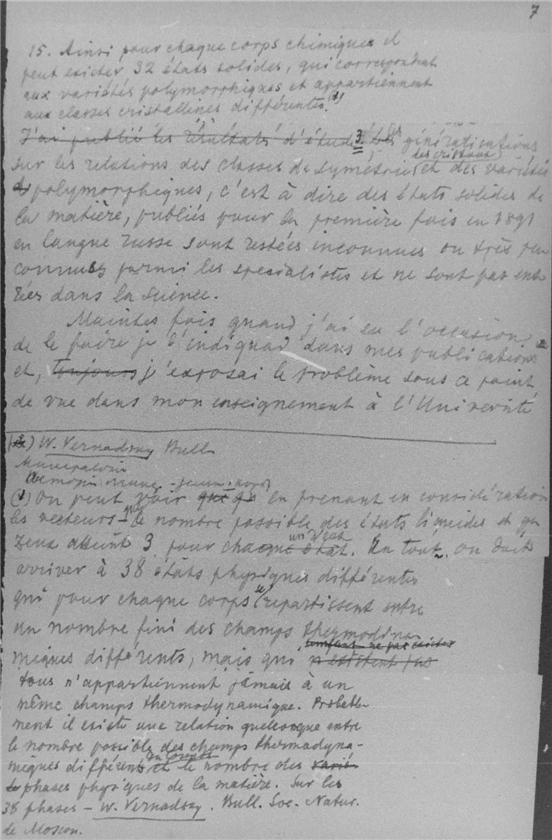 7
15. Ainsi pour chaque corps chimiques il
peut exister 32 états solides, qui correspondent
aux variétés polymorphiques et appartiennent
aux classes cristallines différentes.
J'ai publié les résultats d'étude 3 Les généralisations
des cristaux
sur les relations des classes de symetries et des variétés
polymorpheiques, c'est à dire des états solides de
la matière, publiés pour la première fois en 1891
en langue russe sont restées inconnues ou très peu
connues parmi les spesialistes et ne sont pas ent-
rées dans la science.
Maintes fois quand j'ai eu l'occasion
de le faire je l'indiquai dans mes publications
et, toujours j'exposai le problème sous ce point
de vue dans mon enseignement à l'Université
W. Vernadsky Bull.
(1) On peut voir en prenant en considération
les vecteurs que le nombre possible des états liqueides et ga-
zeux atteint 3 pour chaque état. En tout, on doit
arriver à 38 états physiques différentes
qui pour chaque corps se repartissent entre
un nombre fini des champs thermodina-
miques différents, mais qui n'existent pas
tous n'appartiennent jamais à un
même champs thermodynamique. Probable-
ment il existe une relation quelconque entre
le nombre possible des champs thermadyna-
miques différents et le nombre des varié
phases physiques de la matière. Sur les
38 phases – W. Vernadsky. Bull. Soc. Natur.
de Moscou.